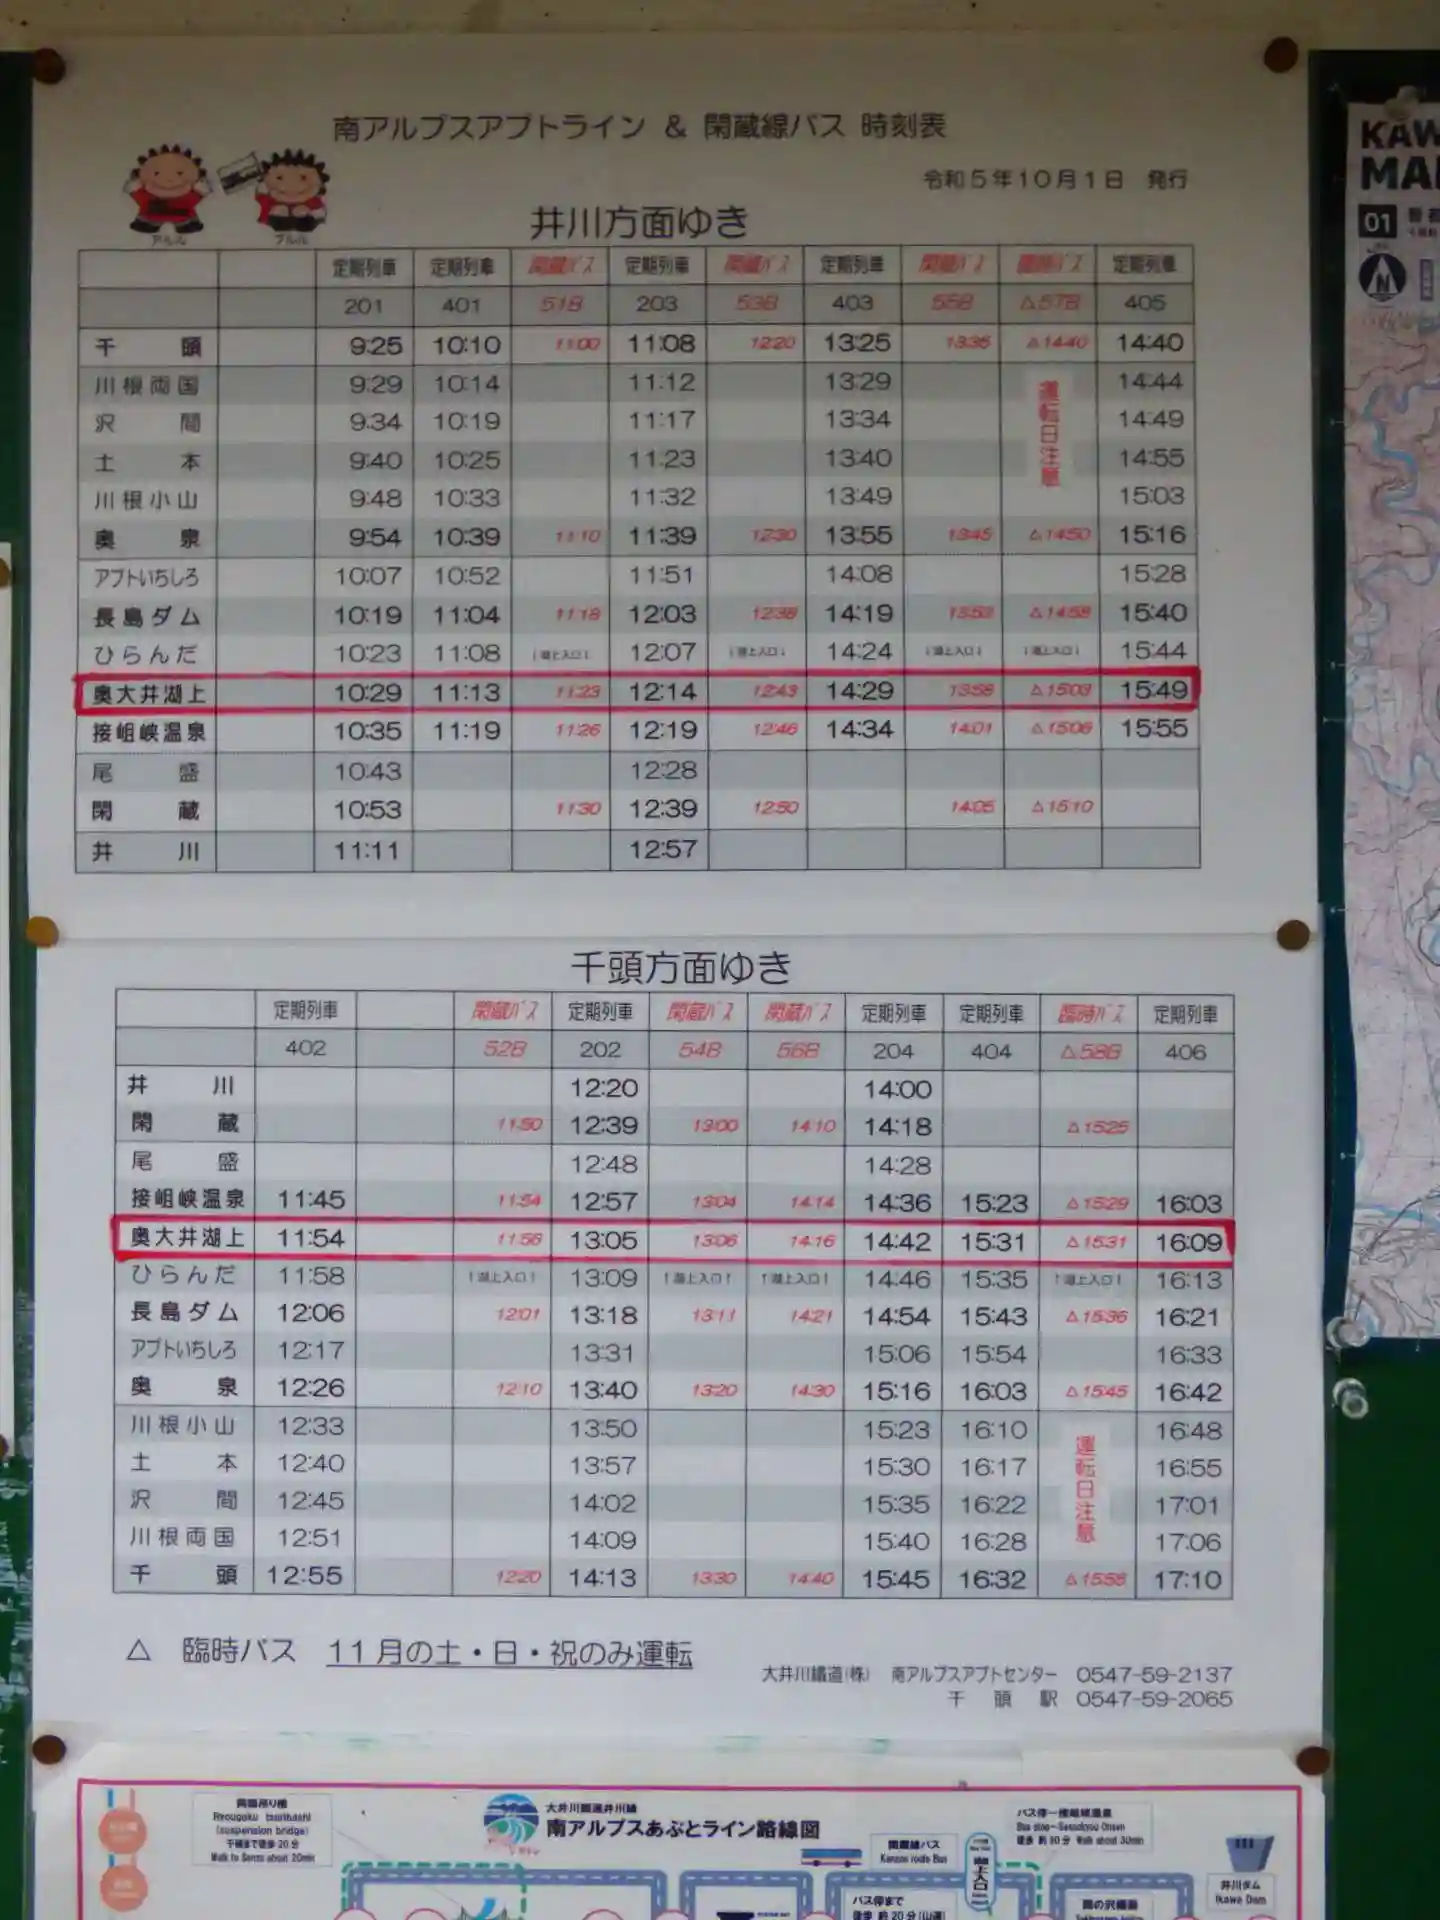 南アルプスアプトライン & 閑蔵線バス 時刻表
令和5年10月1日 発行
アルル プルル
井川方面ゆき
定期列車 定期列車 閑蔵バス 定期列車 閑蔵バス 定期列車 閑蔵バス 臨時バス 定期列車
201 401 51B 203 53B 403 55B △57B 405
千頭 9:25 10:10 11:00 11:08 12:20 13:25 13:35 △14:40 14:40
川根両国 9:29 10:14 11:12 13:29 14:44
沢間 9:34 10:19 11:17 13:34 14:49
土本 9:40 10:25 11:23 13:40 14:55
川根小山 9:48 10:33 11:32 13:49 15:03
運転日注意
奥泉 9:54 10:39 11:10 11:39 12:30 13:55 13:45 △14:50 15:16
アプトいちしろ 10:07 10:52 11:51 14:08 15:28
長島ダム 10:19 11:04 11:18 12:03 12:38 14:19 13:53 △14:58 15:40
ひらんだ 10:23 11:08 ↓湖上入口↓ 12:07 ↓湖上入口↓ 14:24 ↓湖上入口↓ ↓湖上入口↓ 15:44
奥大井湖上 10:29 11:13 11:23 12:14 12:43 14:29 13:58 △15:03 15:49
接岨峡温泉 10:35 11:19 11:26 12:19 12:46 14:34 14:01 △15:06 15:55
尾盛 10:43 12:28
閑蔵 10:53 11:30 12:39 12:50 14:05 △15:10
井川 11:11 12:57
千頭方面ゆき
定期列車 閑蔵バス 定期列車 閑蔵バス 閑蔵バス 定期列車 定期列車 臨時バス 定期列車
402 52B 202 54B 56B 204 404 △58B 406
井川 12:20 14:00
閑蔵 11:50 12:39 13:00 14:10 14:18 △15:25
尾盛 12:48 14:28
接岨峡温泉 11:45 11:54 12:57 13:04 14:14 14:36 15:23 △15:29 16:03
奥大井湖上 11:54 11:56 13:05 13:06 14:16 14:42 15:31 △15:31 16:09
ひらんだ 11:58 ↑湖上入口↑ 13:09 ↑湖上入口↑ ↑湖上入口↑ 14:46 15:35 ↑湖上入口↑ 16:13
長島ダム 12:06 12:01 13:18 13:11 14:21 14:54 15:43 △15:36 16:21
アプトいちしろ 12:17 13:31 15:06 15:54 16:33
奥泉 12:26 12:10 13:40 13:20 14:30 15:16 16:03 △15:45 16:42
川根小山 12:33 13:50 15:23 16:10 16:48
土本 12:40 13:57 15:30 16:17 16:55
沢間 12:45 14:02 15:35 16:22 17:01
川根両国 12:51 14:09 15:40 16:28 17:06
運転日注意
千頭 12:55 12:20 14:13 13:30 14:40 15:45 16:32 △15:56 17:10
△ 臨時バス 11月の土・日・祝のみ運転
大井川鐵道(株) 南アルプスアプトセンター 0547-59-2137
千頭駅 0547-59-2065
両国吊り橋
Ryougoku tsuribashi
(suspension bridge)
千頭まで徒歩20分
Walk to Senzu about 20min
大井川鐵道井川線
南アルプスあぷとライン路線図
閑蔵線バス
Kanzou route Bus
バス停~接岨峡温泉
Bus stop~Sessokyou Onsen
徒歩 約30分 Walk about 30min
湖上入口
バス停まで
徒歩 約20分(山道)
関の沢橋梁
井川ダム
Ikawa Dam
KAW
MA
01
N